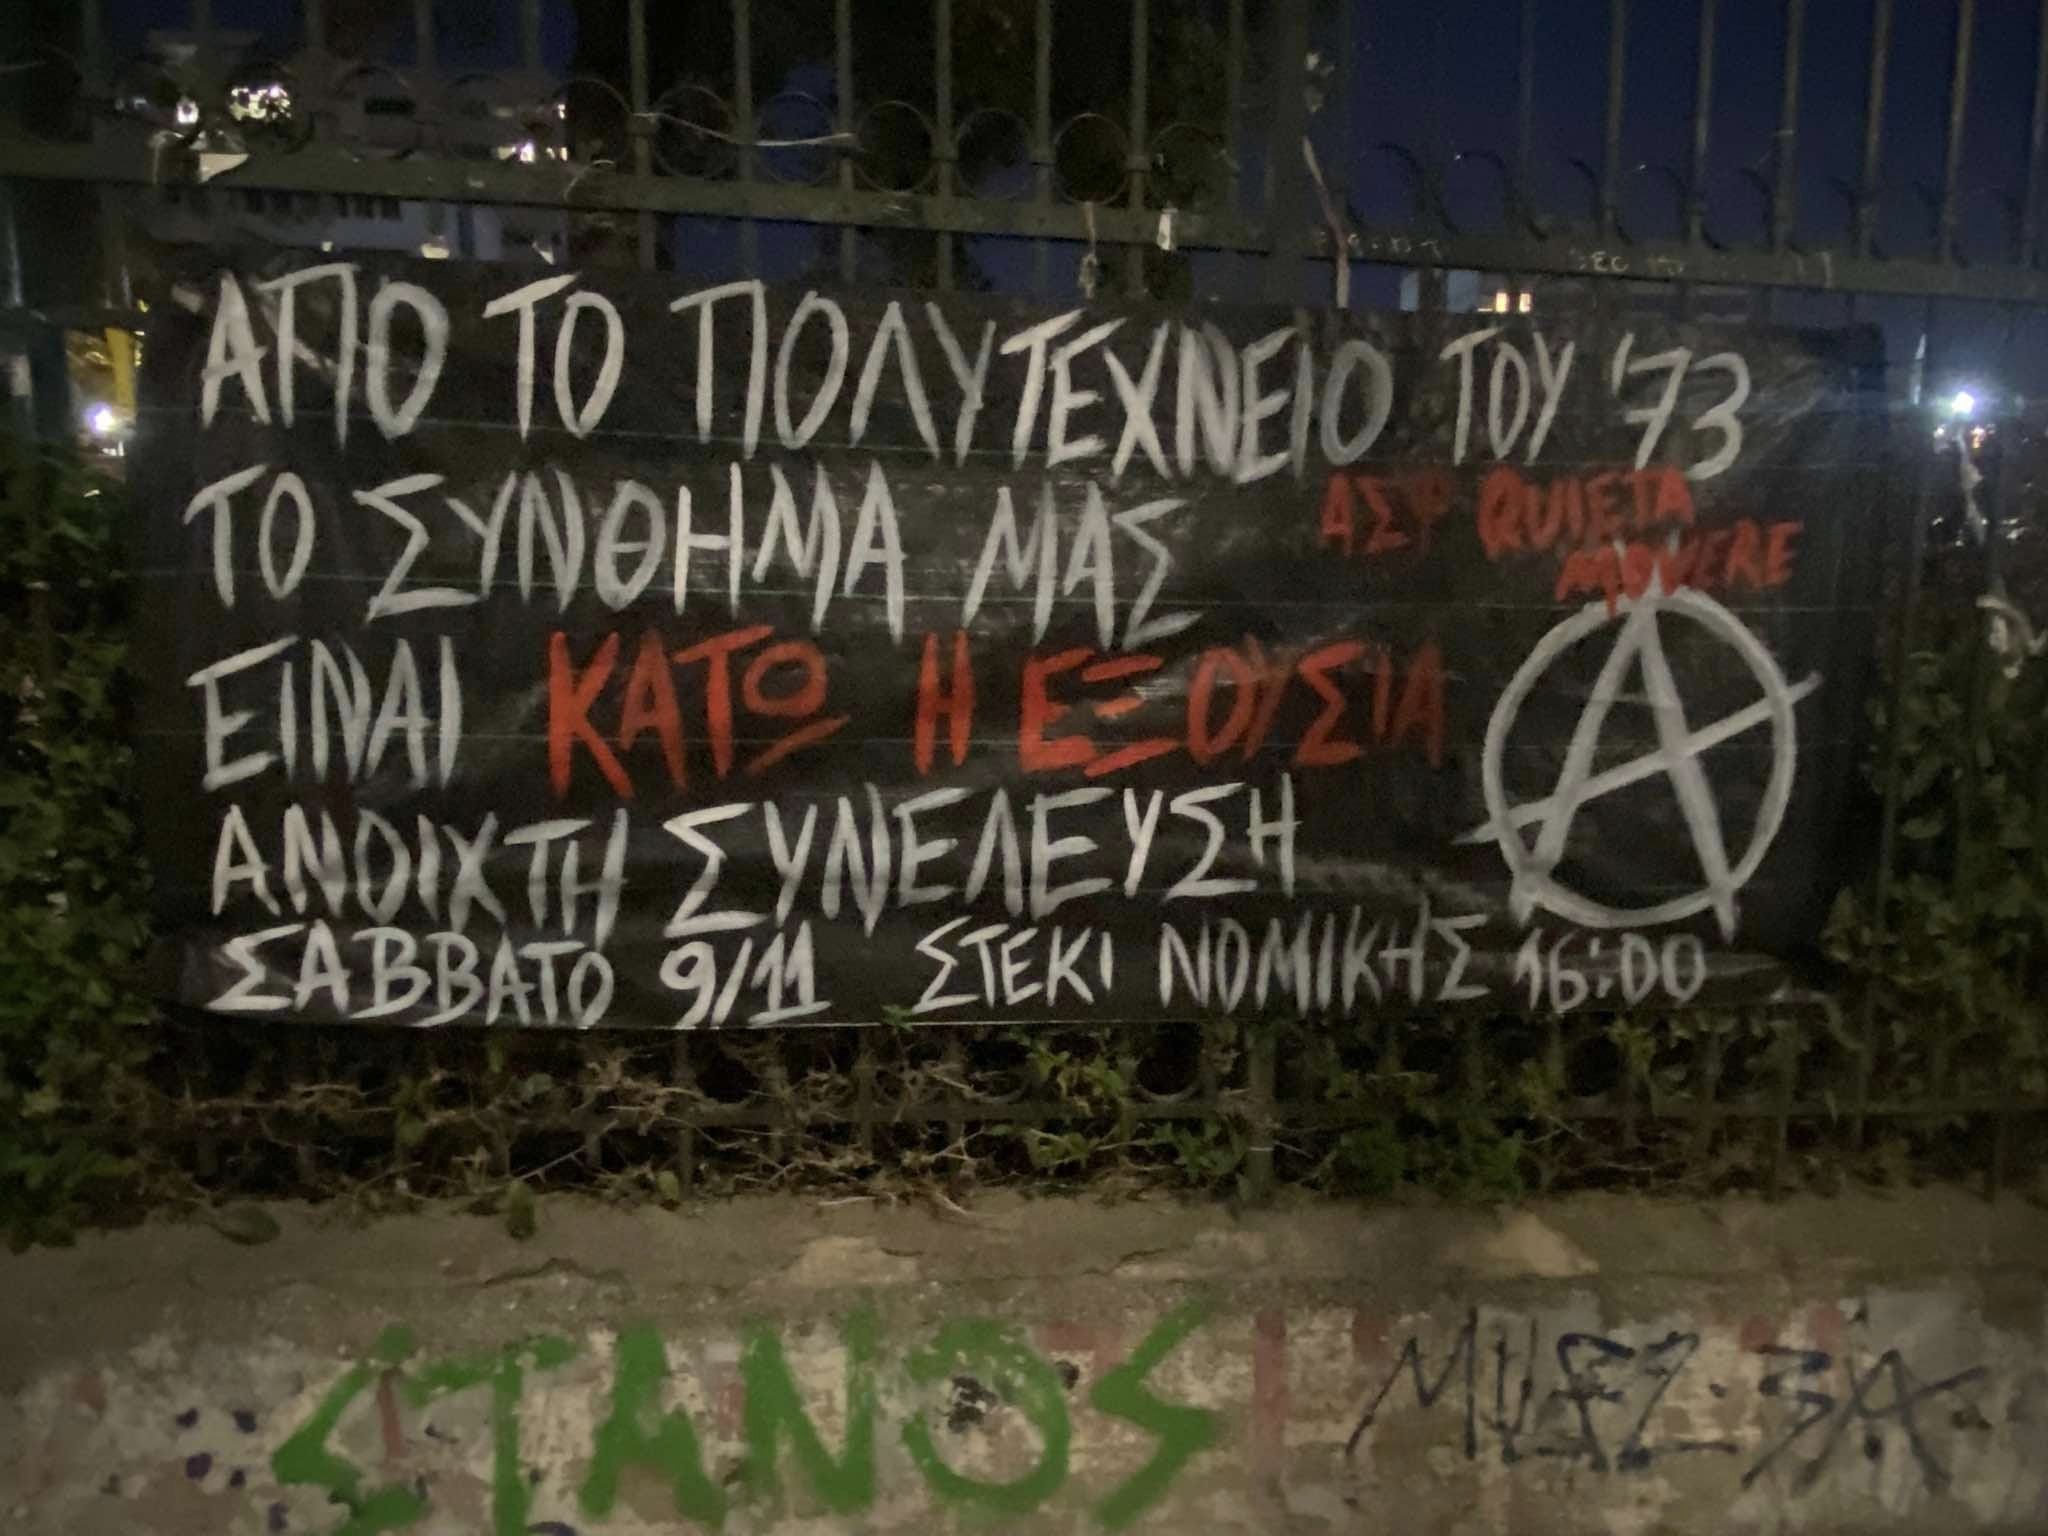 ΑΠΟ ΤΟ ΠΟΛΥΤΕΧΝΕΙΟ ΤΟΥ '73
ΤΟ ΣΥΝΘΗΜΑ ΜΑΣ
ΑΣΨ QUIETA
MOVERE
ΕΙΝΑΙ ΚΑΤΩ Η ΕΞΟΥΣΙΑ
ΑΝΟΙΧΤΗ ΣΥΝΕΛΕΥΣΗ
ΣΑΒΒΑΤΟ 9/11 ΣΤΕΚΙ ΝΟΜΙΚΗΣ 16:00
ΣΤΑΝΟΣ